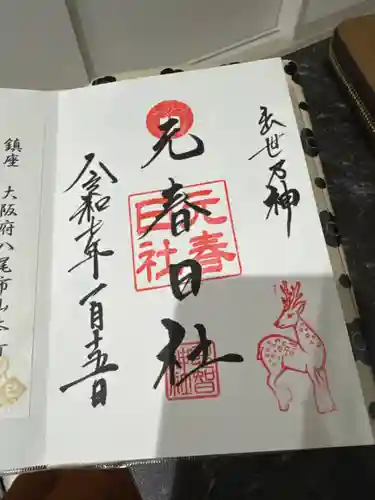 出世乃神
元春日社
元春
日社
令和七年一月十五日
鎮座 大阪府八尾市山本